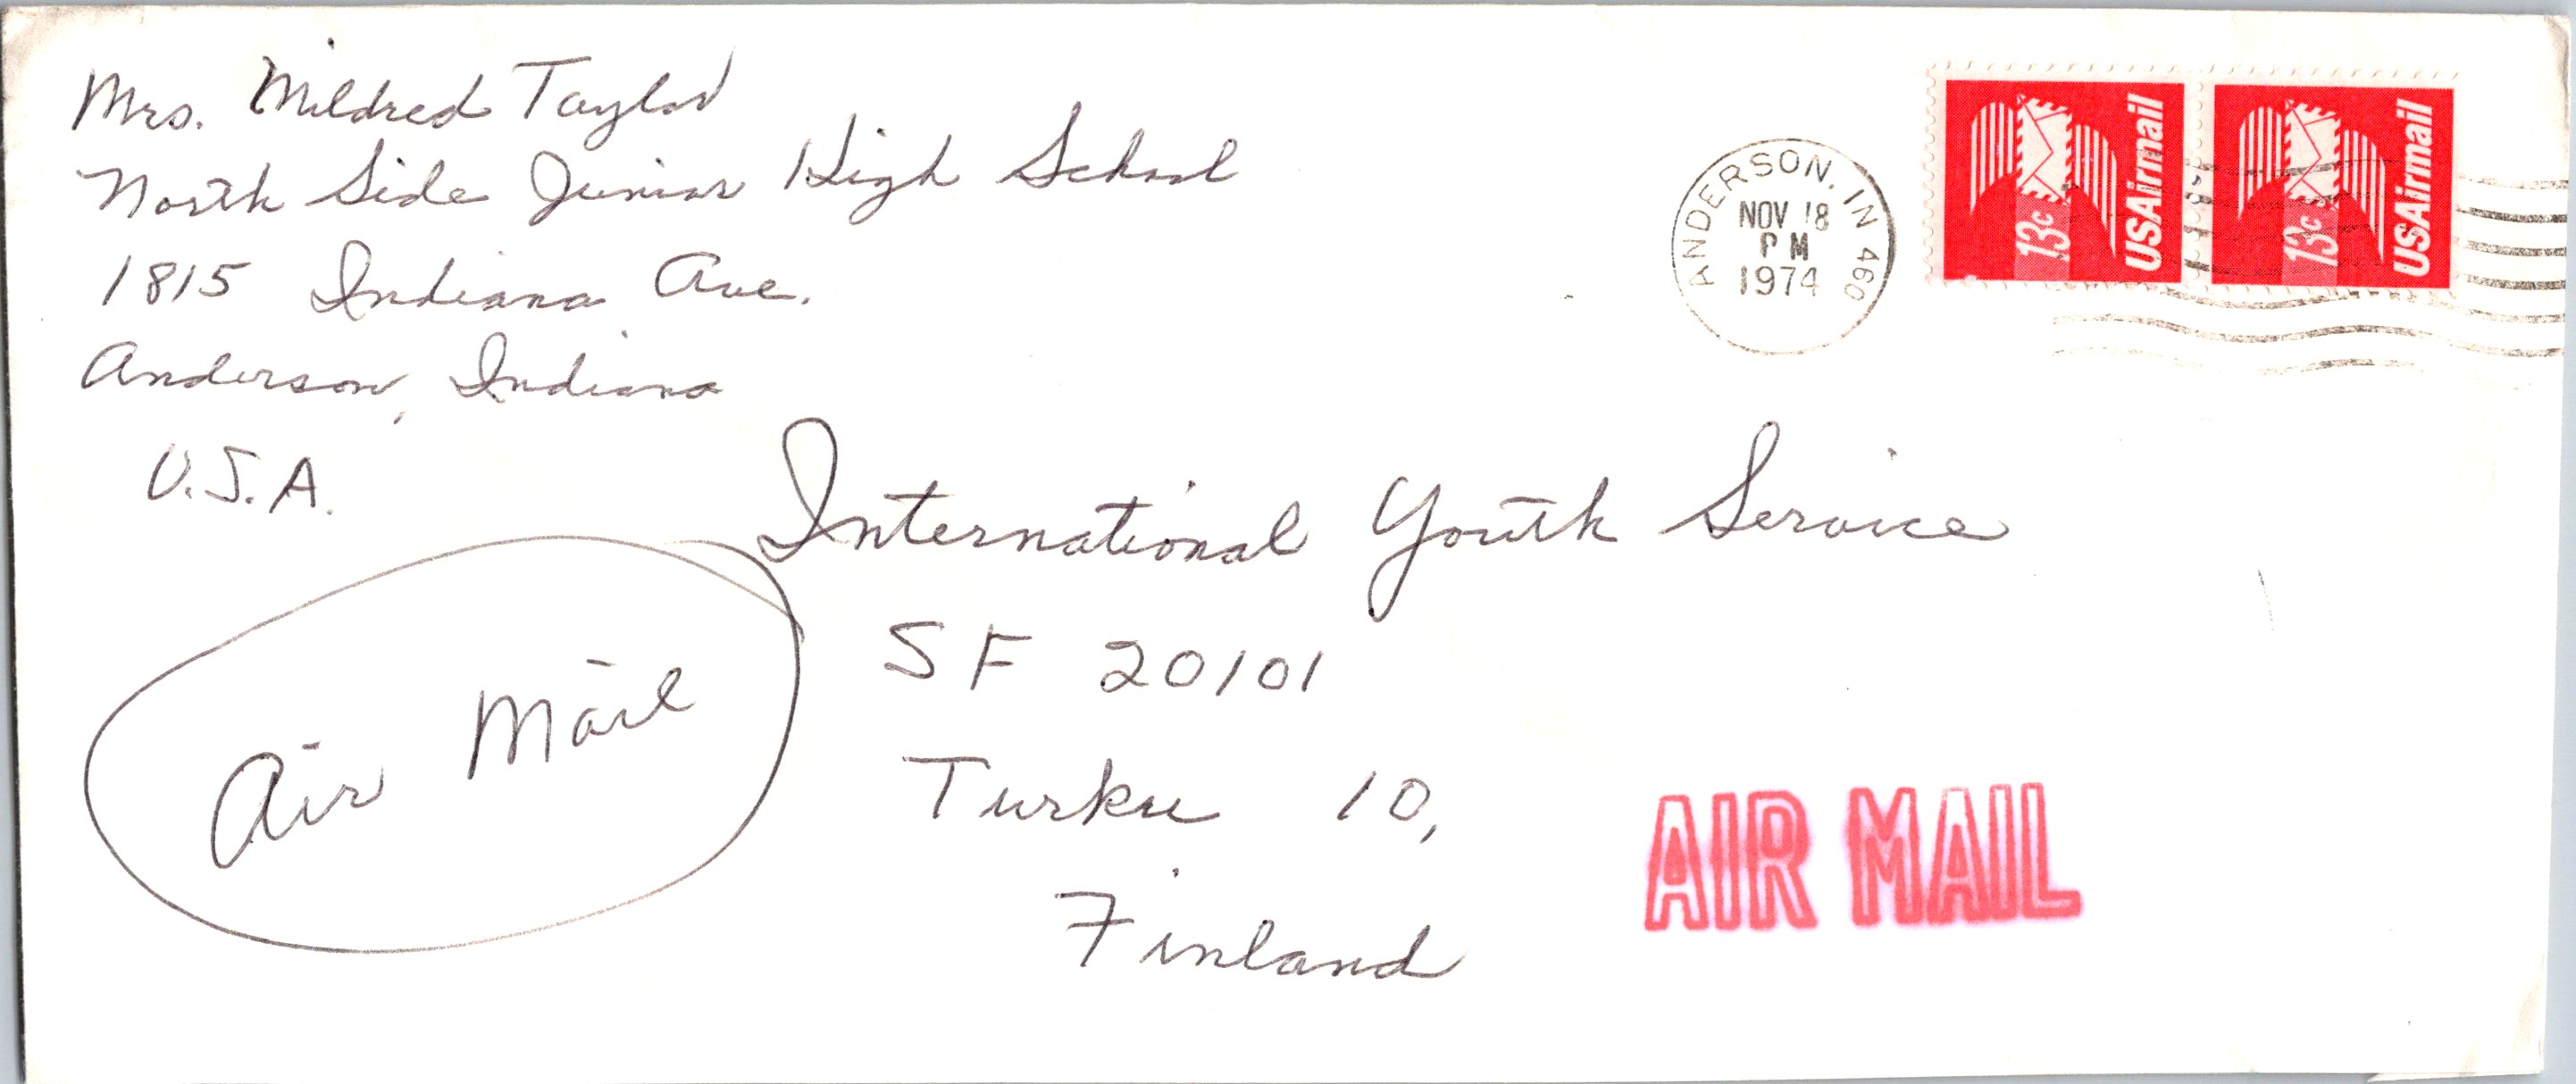 Mrs. Mildred Taylor
North Side Junior High School
1815 Indiana Ave.
Anderson, Indiana
U.S.A.
ANDERSON, IN 460
NOV 18
PM
1974
13c
USAirmail
13c
USAirmail
International Youth Service
SF 20101
Turku 10,
Finland
Air Mail
AIR MAIL